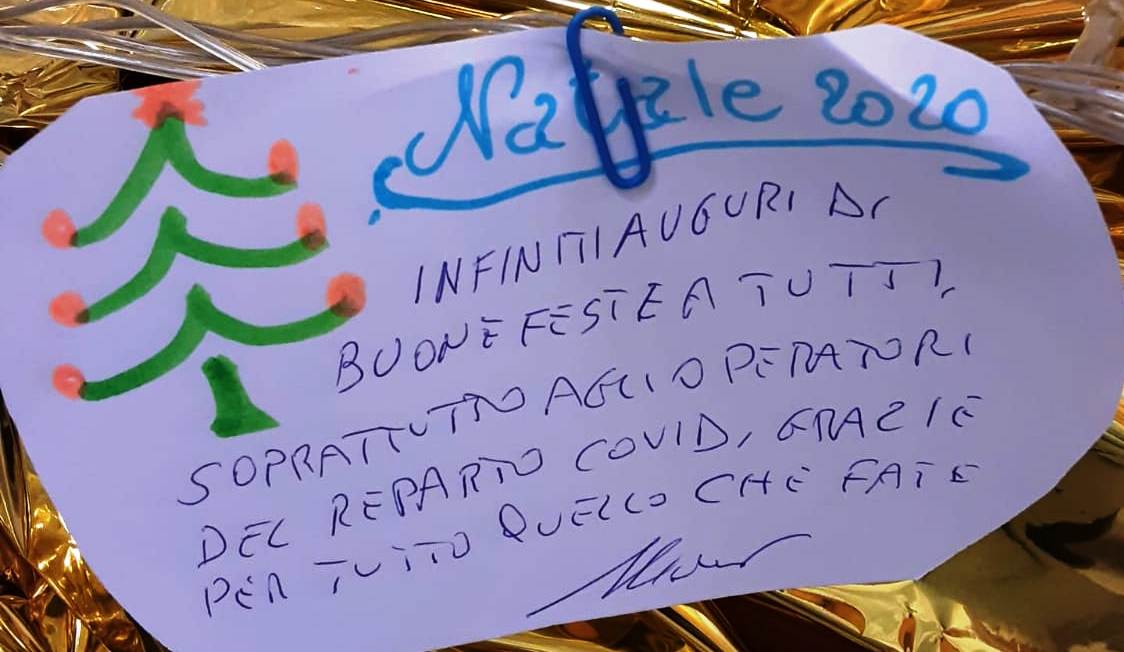 Natale 2020
INFINITI AUGURI DI
BUONE FESTE A TUTTI,
SOPRATTUTTO AGLI OPERATORI
DEL REPARTO COVID, GRAZIE
PER TUTTO QUELLO CHE FATE